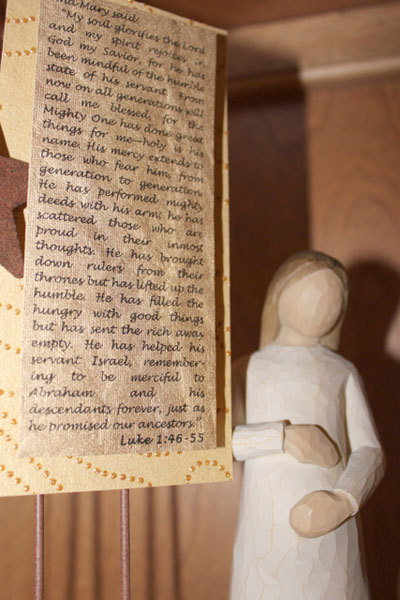 Mary said:
"My soul glorifies the Lord
and my spirit rejoices in
God my Savior, for he has
been mindful of the humble
state of his servant. From
now on all generations will
call me blessed, for the
Mighty One has done great
things for me—holy is his
name. His mercy extends to
those who fear him, from
generation to generation.
He has performed mighty
deeds with his arm; he has
scattered those who are
proud in their inmost
thoughts. He has brought
down rulers from their
thrones but has lifted up the
humble. He has filled the
hungry with good things
but has sent the rich away
empty. He has helped his
servant Israel, remember-
ing to be merciful to
Abraham and his
descendants forever, just as
he promised our ancestors."
Luke 1:46-55